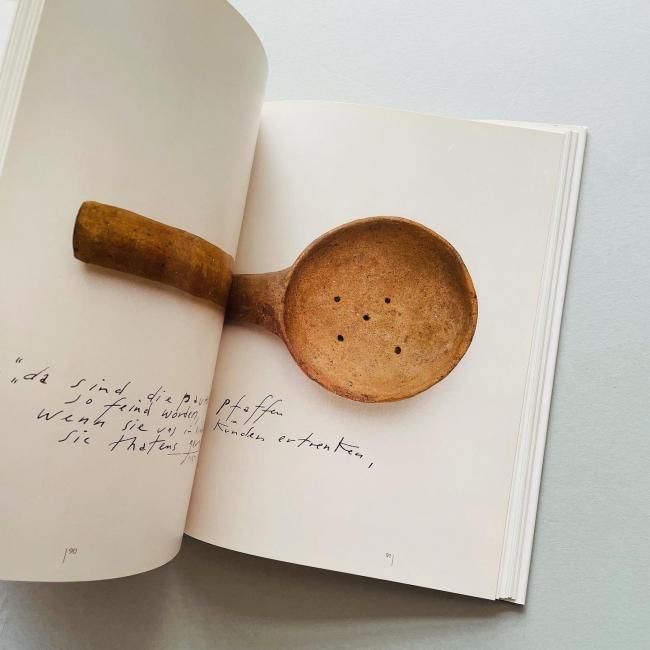 "da sind die pfaffen
so feind worden,
wenn sie uns künden ertrenken,
sie thatens
90
91